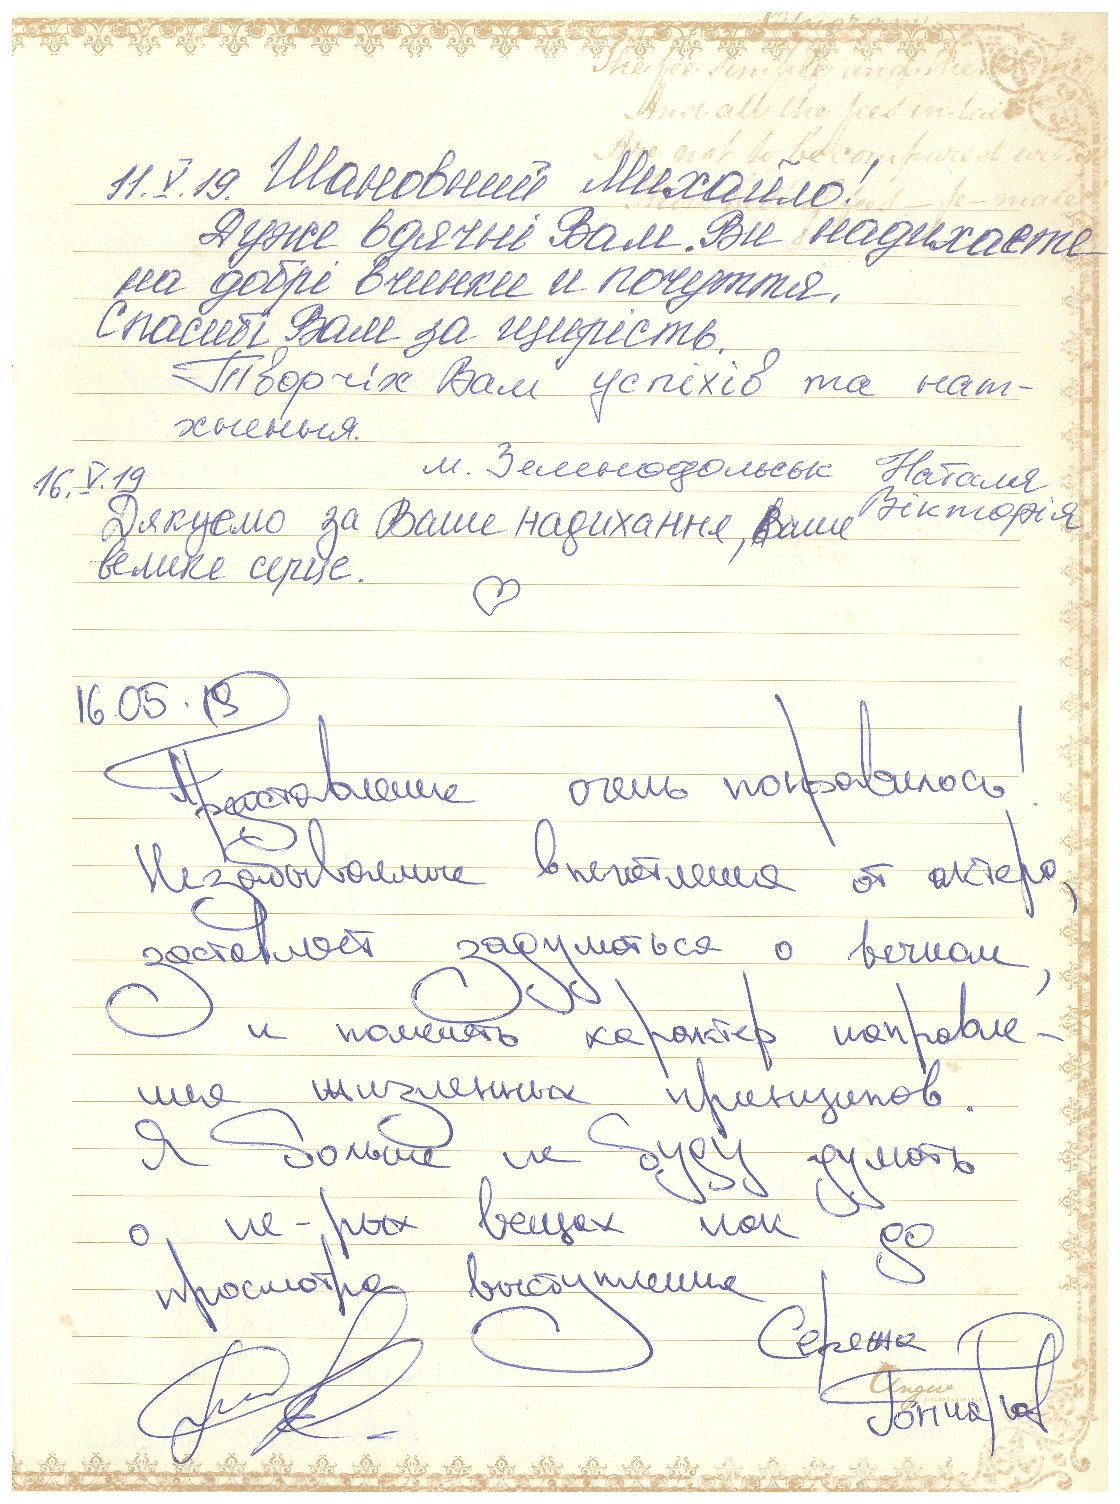 The fee simple and the
And all the fees in tail
Are not to be compared with
11.V.19. Шановний Михайло!
Дуже вдячні Вам. Ви надихаєте
на добрі вчинки и почуття.
Спасибі Вам за щирість.
Творчіх Вам успіхів та нат-
хнення.
м. Зеленодольськ Наталя
Вікторія
16.V.19
Дякуємо за Ваше надихання, Ваше
велике серце.
16.05.19
Представление очень понравилось!
Незабываемые впечатления от актера,
заставляет задуматься о вечном,
и поменять характер направле-
ния жизненных принципов.
Я больше не буду думать
о не-рых вещах как до
просмотра выступления
Сережа